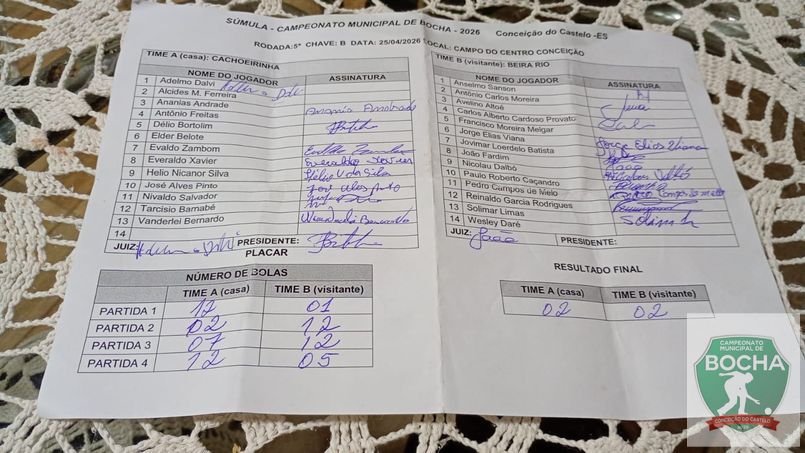 SÚMULA - CAMPEONATO MUNICIPAL DE BOCHA - 2026 Conceição do Castelo -ES
RODADA:5ª CHAVE: B DATA: 25/04/2026 LOCAL: CAMPO DO CENTRO CONCEIÇÃO
TIME A (casa): CACHOEIRINHA
NOME DO JOGADOR ASSINATURA
1 Adelmo Dalvi
2 Alcides M. Ferreira
3 Ananias Andrade
4 Antônio Freitas
5 Délio Bortolim
6 Elder Belote
7 Evaldo Zambom
8 Everaldo Xavier
9 Helio Nicanor Silva
10 José Alves Pinto
11 Nivaldo Salvador
12 Tarcisio Barnabé
13 Vanderlei Bernardo
14
JUIZ: PRESIDENTE:
TIME B (visitante): BEIRA RIO
NOME DO JOGADOR ASSINATURA
1 Anselmo Sanson
2 Antônio Carlos Moreira
3 Avelino Altoé
4 Carlos Alberto Cardoso Provato
5 Francisco Moreira Melgar
6 Jorge Elias Viana Jorge Elias Viana
7 Jovimar Loerdelo Batista
8 João Fardim João
9 Nicolau Dalbó Nicolau Dalbó
10 Paulo Roberto Caçandro
11 Pedro Campos de Melo
12 Reinaldo Garcia Rodrigues
13 Solimar Limas
14 Wesley Daré
JUIZ: João PRESIDENTE:
PLACAR
NÚMERO DE BOLAS
TIME A (casa) TIME B (visitante)
PARTIDA 1 12 01
PARTIDA 2 02 12
PARTIDA 3 07 12
PARTIDA 4 12 05
RESULTADO FINAL
TIME A (casa) TIME B (visitante)
02 02
CAMPEONATO
MUNICIPAL DE
BOCHA
CONCEIÇÃO DO CASTELO